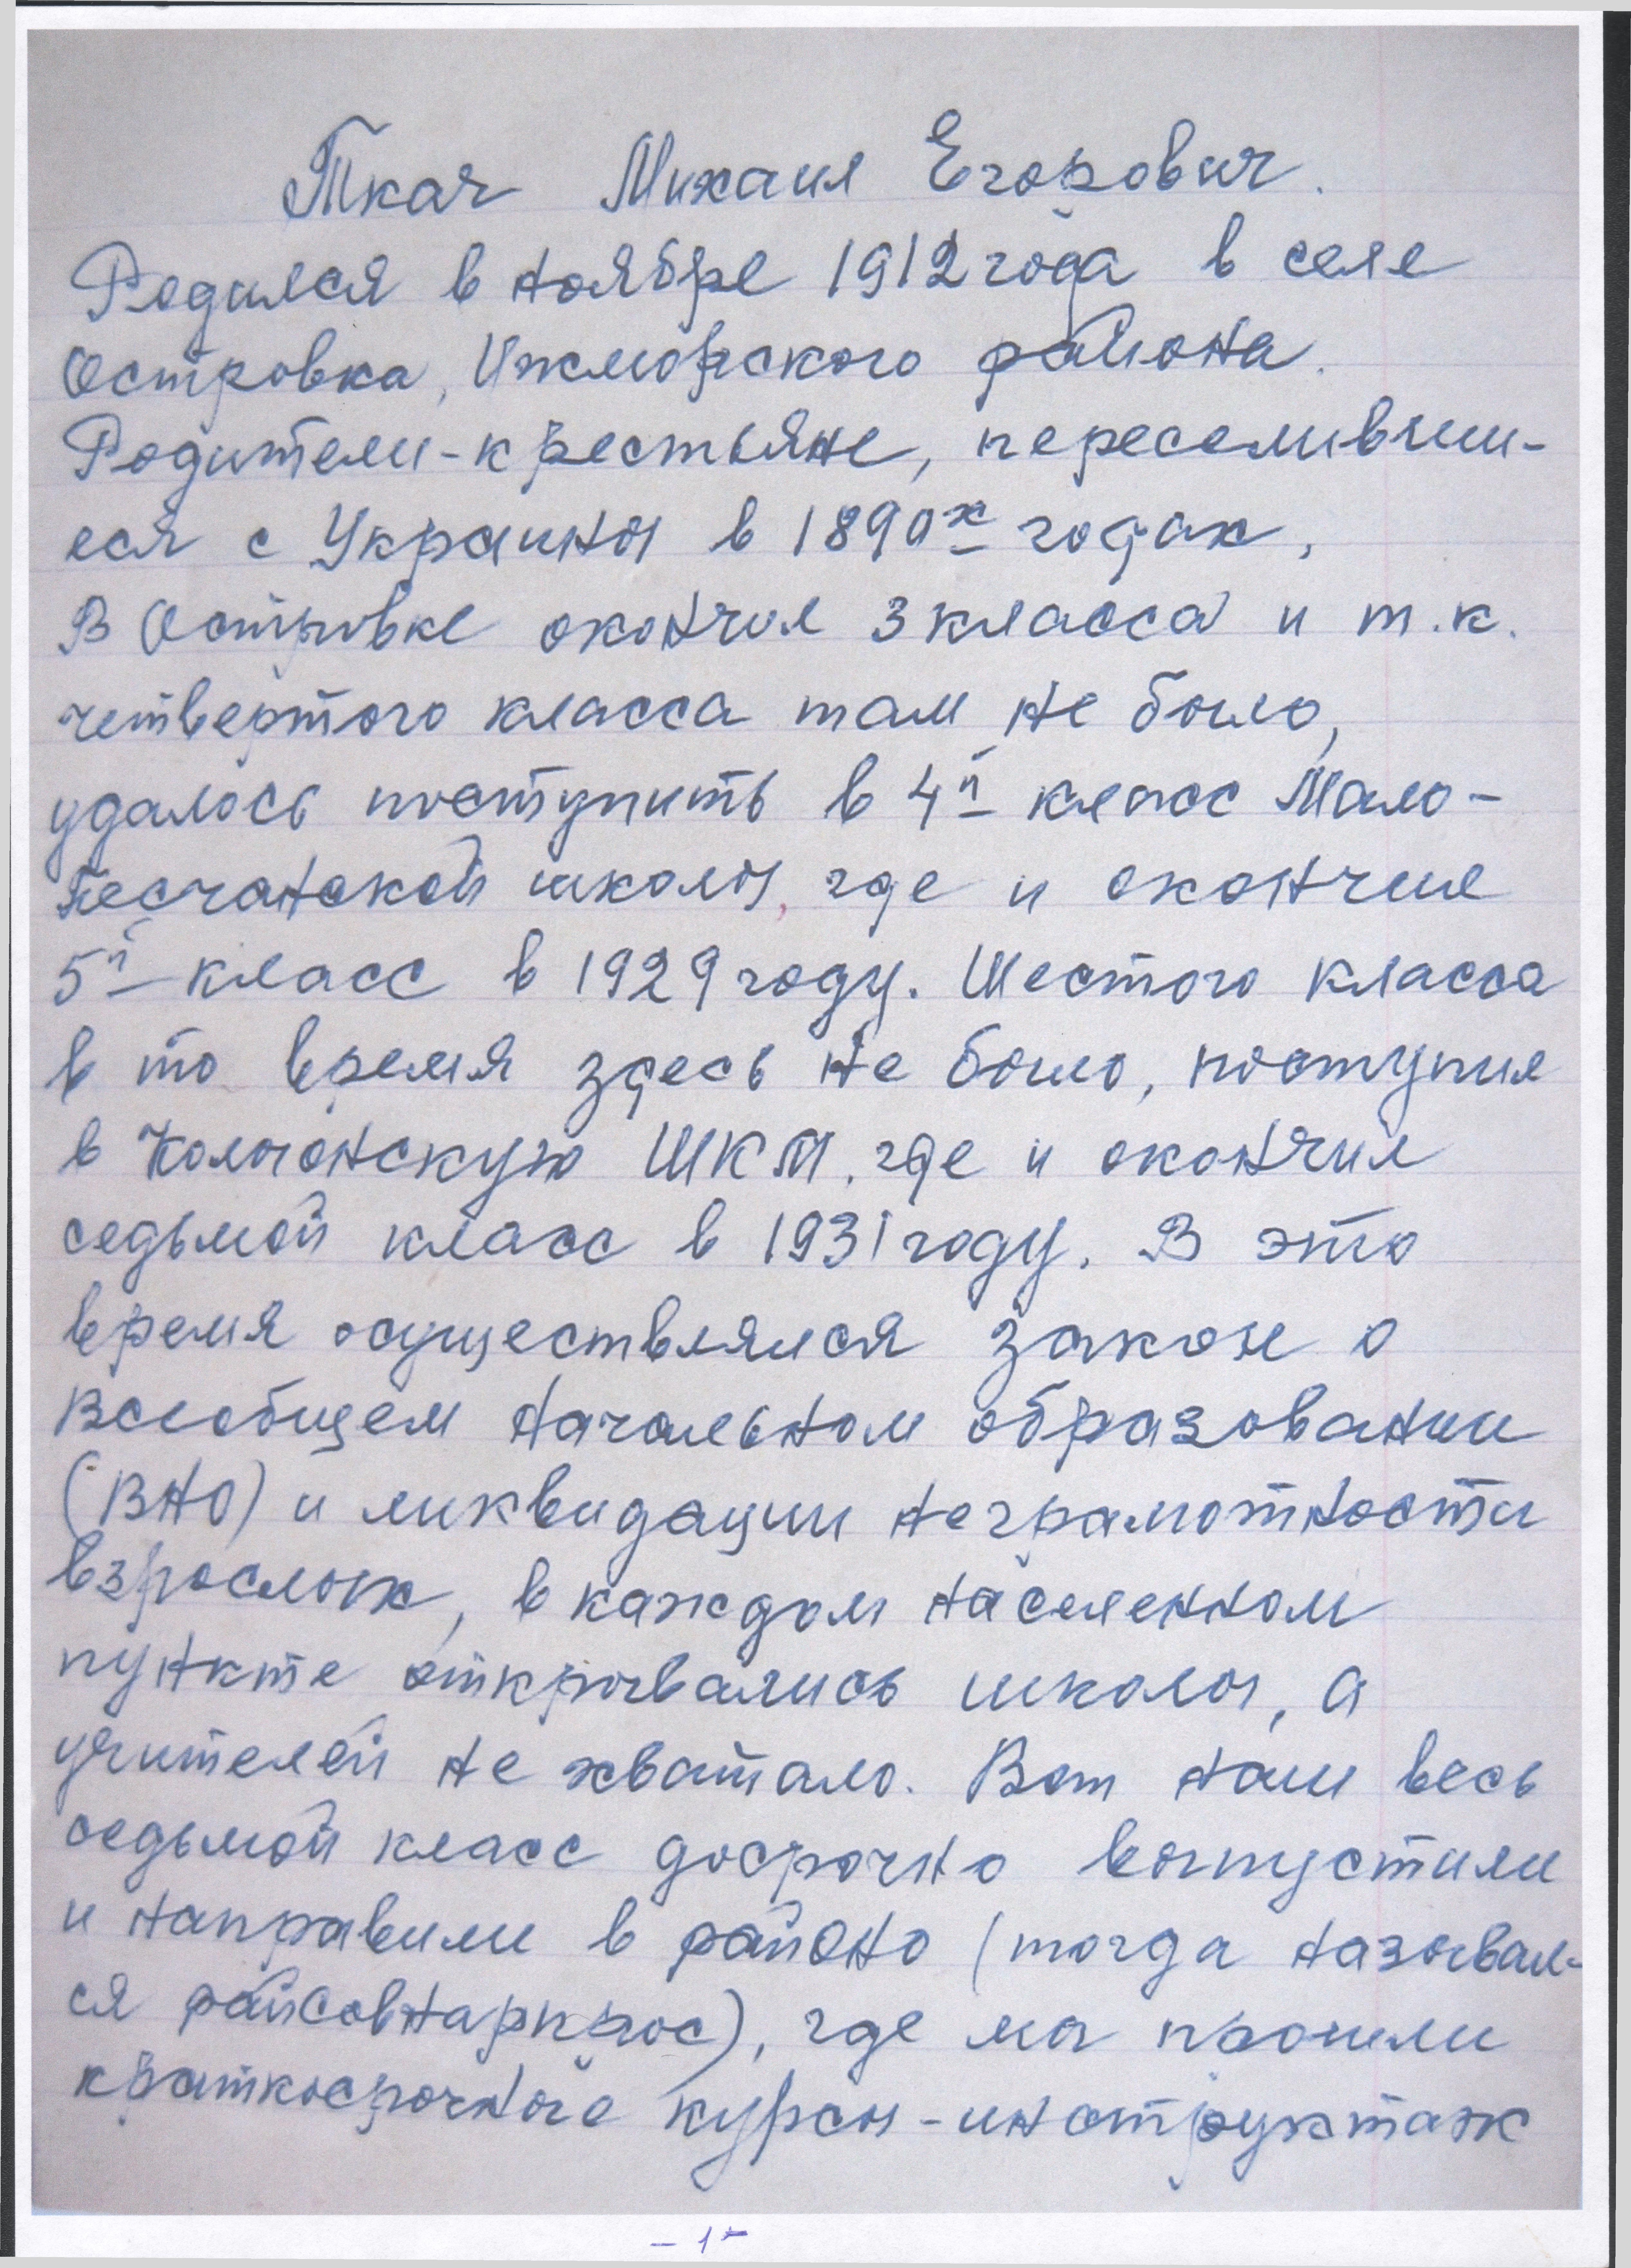 Ткач Михаил Егорович.
Родился в ноябре 1912 года в селе
Островка, Ижморского района.
Родители-крестьяне, переселивши-
еся с Украины в 1890х годах.
В Островке окончил 3 класса и т.к.
четвертого класса там не было,
удалось поступить в 4й класс Мало-
Песчанской школы, где и окончил
5й класс в 1929 году. Шестого класса
в то время здесь не было, поступил
в Колыонскую ШКМ, где и окончил
седьмой класс в 1931 году. В это
время осуществлялся закон о
Всеобщем начальном образовании
(ВНО) и ликвидации неграмотности
взрослых, в каждом населенном
пункте открывались школы, а
учителей не хватало. Вот наш весь
седьмой класс досрочно выпустили
и направили в районо (тогда называл-
ся райсовнарпрос), где мы прошли
краткосрочные курсы-инструктаж
- 1 -